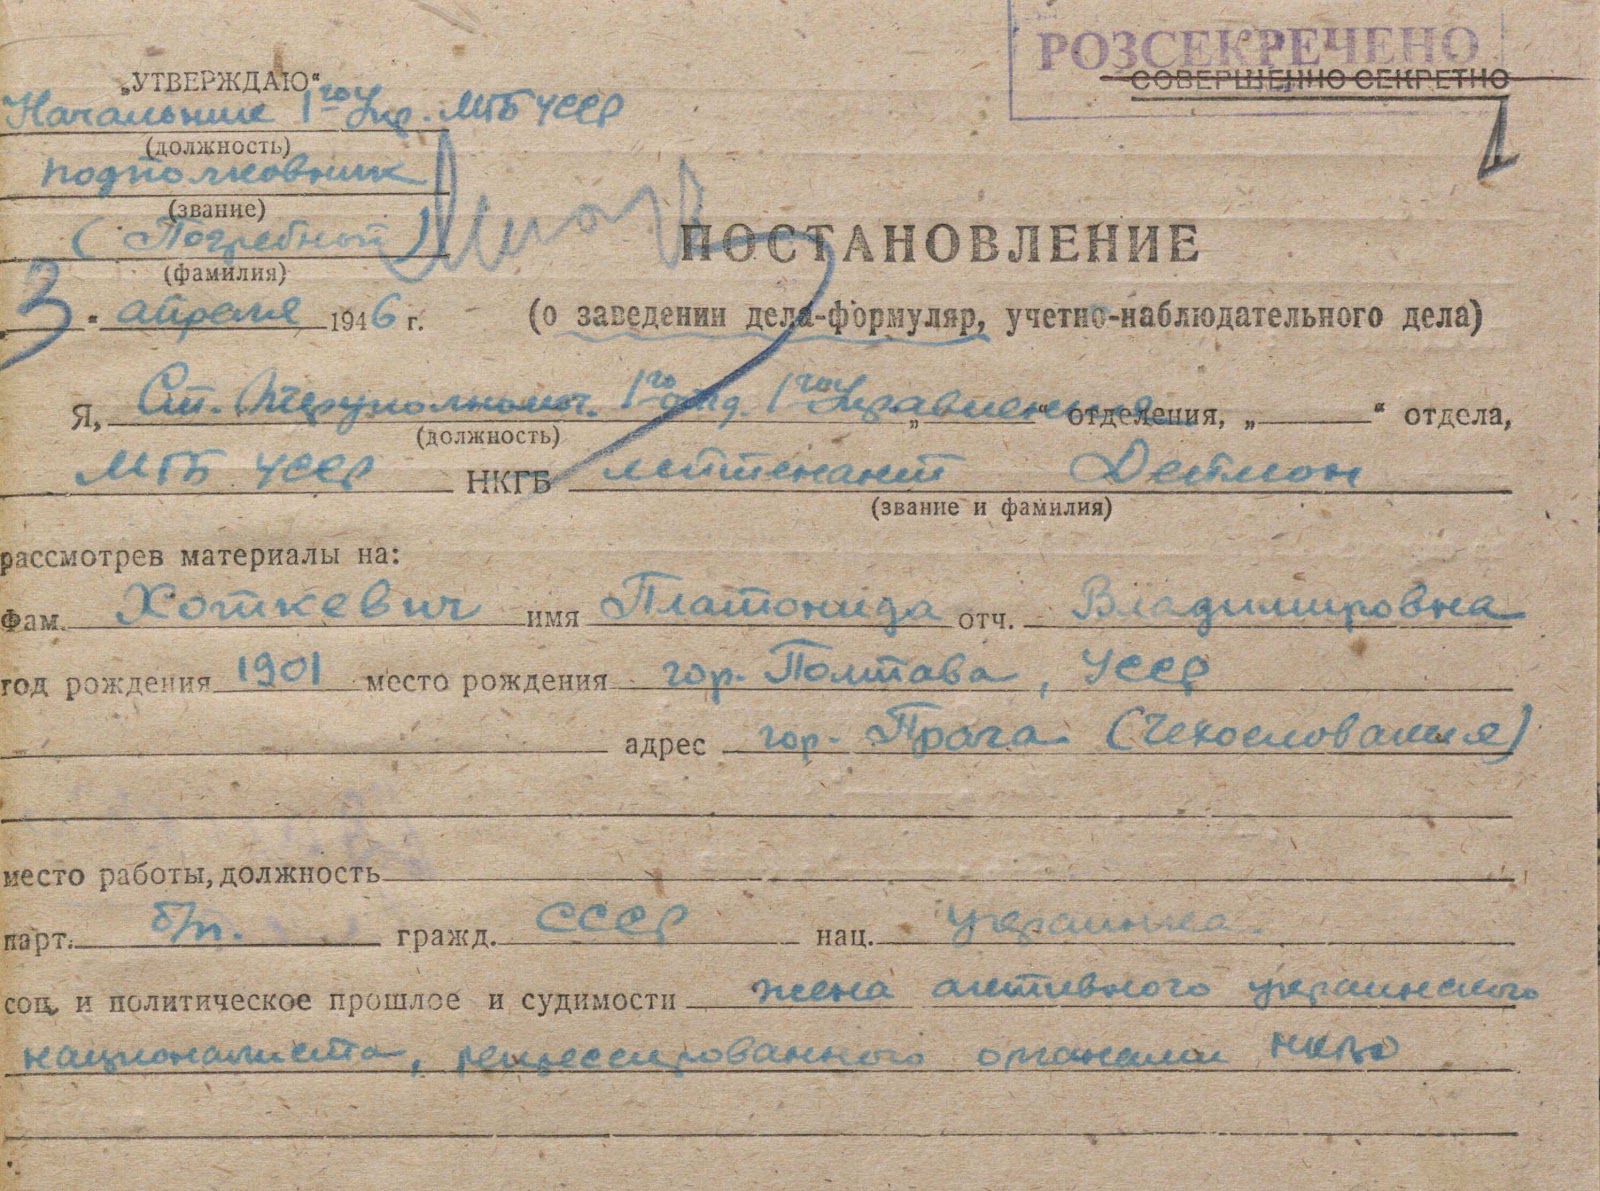 РОЗСЕКРЕЧЕНО
СОВЕРШЕННО СЕКРЕТНО
1
„УТВЕРЖДАЮ“
Начальник 1го Упр. МГБ УССР
(должность)
подполковник
(звание)
(Погребной)
(фамилия)
„3“ апреля 1946 г.
ПОСТАНОВЛЕНИЕ
(о заведении дела-формуляр, учетно-наблюдательного дела)
Я, Ст. Оперуполномоч. 1го отд. 1го Управления “ отделения, „ “ отдела,
(должность)
МГБ УССР НКГБ лейтенант
(звание и фамилия)
рассмотрев материалы на:
Фам. Хоткевич имя Платонида отч. Владимировна
год рождения 1901 место рождения гор. Полтава, УССР
адрес гор. Прага (Чехословакия)
место работы, должность
парт. б/п. гражд. СССР нац. украинка.
соц. и политическое прошлое и судимости жена активного украинского
националиста, репрессированного органами НКВД